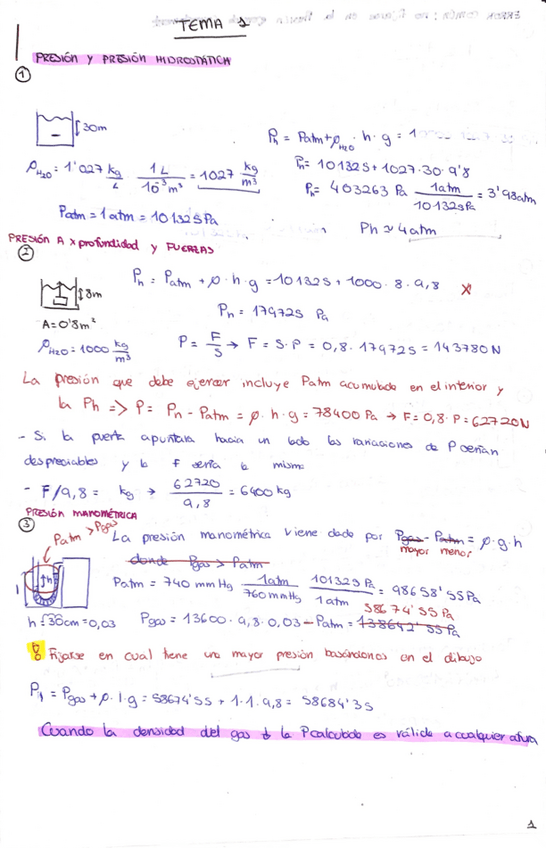 TEMA 1
PRESIÓN Y PRESIÓN HIDROSTÁTICA
①
30m
Ph = Patm + ρH2O · h · g =
ρH2O = 1'027 kg/L · 1L/10⁻³m³ = 1027 kg/m³
Ph = 101325 + 1027 · 30 · 9'8
Ph = 403263 Pa · 1atm/101325Pa = 3'98atm
Patm = 1 atm = 101325Pa
Ph ≈ 4atm
PRESIÓN A x profundidad y FUERZAS
②
8m
Ph = Patm + ρ · h · g = 101325 + 1000 · 8 · 9,8 X
Ph = 179725 Pa
A = 0'8m²
ρH2O = 1000 kg/m³
P = F/S → F = S · P = 0,8 · 179725 = 143780 N
La presión que debe ejercer incluye Patm acumulada en el interior y
la Ph => P = Ph - Patm = ρ · h · g = 78400 Pa → F = 0,8 · P = 62720N
- Si la puerta apuntara hacia un lado las variaciones de P serían
despreciables y la f sería la misma
- F/9,8 = kg → 62720/9,8 = 6400 kg
PRESIÓN MANOMÉTRICA
③
Patm > Pgas
La presión manométrica viene dada por Pgas - Patm = ρ · g · h
mayor menor
donde Pgas > Patm
h
Patm = 740 mmHg · 1atm/760mmHg · 101325 Pa/1 atm = 98658'55Pa
58674'55 Pa
h = 30cm = 0,03 Pgas = 13600 · 9,8 · 0,03 - Patm = 138642'55 Pa
Fijarse en cual tiene una mayor presión basándonos en el dibujo
P1 = Pgas + ρ · l · g = 58674'55 + 1 · 1 · 9,8 = 58684'35
Cuando la densidad del gas ↓ la P calculada es válida a cualquier altura
1